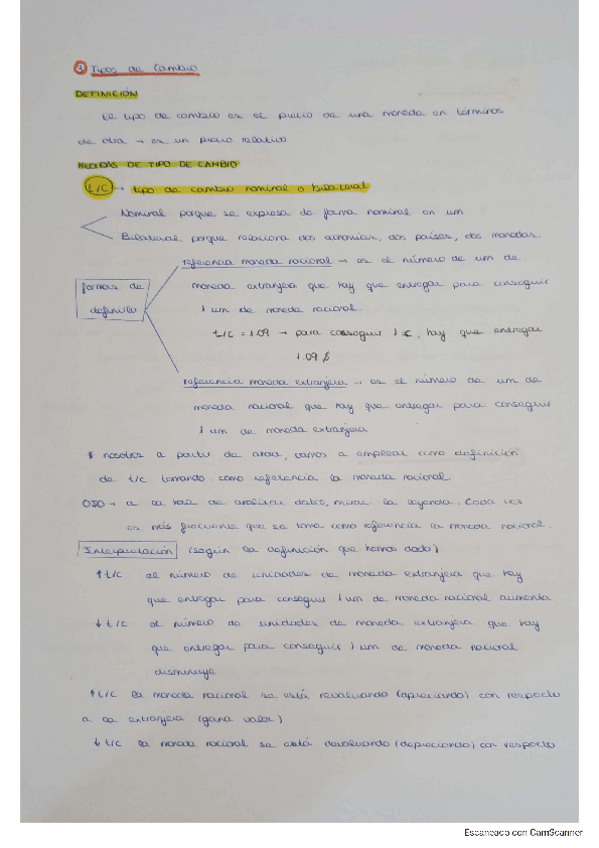 ③ Tipos de Cambio
DEFINICIÓN
El tipo de cambio es el precio de una moneda en términos
de otra → es un precio relativo
MEDIDAS DE TIPO DE CAMBIO
t/c → tipo de cambio nominal o bilateral
Nominal porque se expresa de forma nominal en um
Bilateral porque relaciona dos economías, dos países, dos monedas.
formas de
definirlo
referencia moneda nacional → es el número de um de
moneda extranjera que hay que entregar para conseguir
1 um de moneda nacional.
t/c = 1.09 → para conseguir 1 €, hay que entregar
1.09 $
referencia moneda extranjera → es el número de um de
moneda nacional que hay que entregar para conseguir
1 um de moneda extranjera
* nosotros a partir de ahora, vamos a emplear como definición
de t/c tomando como referencia la moneda nacional.
OJO → a la hora de analizar datos, mirar la leyenda. Cada vez
es más frecuente que se tome como referencia la moneda nacional.
Interpretación (según la definición que hemos dado)
↑ t/c el número de unidades de moneda extranjera que hay
que entregar para conseguir 1 um de moneda nacional aumenta
↓ t/c el número de unidades de moneda extranjera que hay
que entregar para conseguir 1 um de moneda nacional
disminuye
↑ t/c la moneda nacional se está revaluando (apreciando) con respecto
a la extranjera (gana valor)
↓ t/c la moneda nacional se está devaluando (depreciando) con respecto
Escaneado con CamScanner